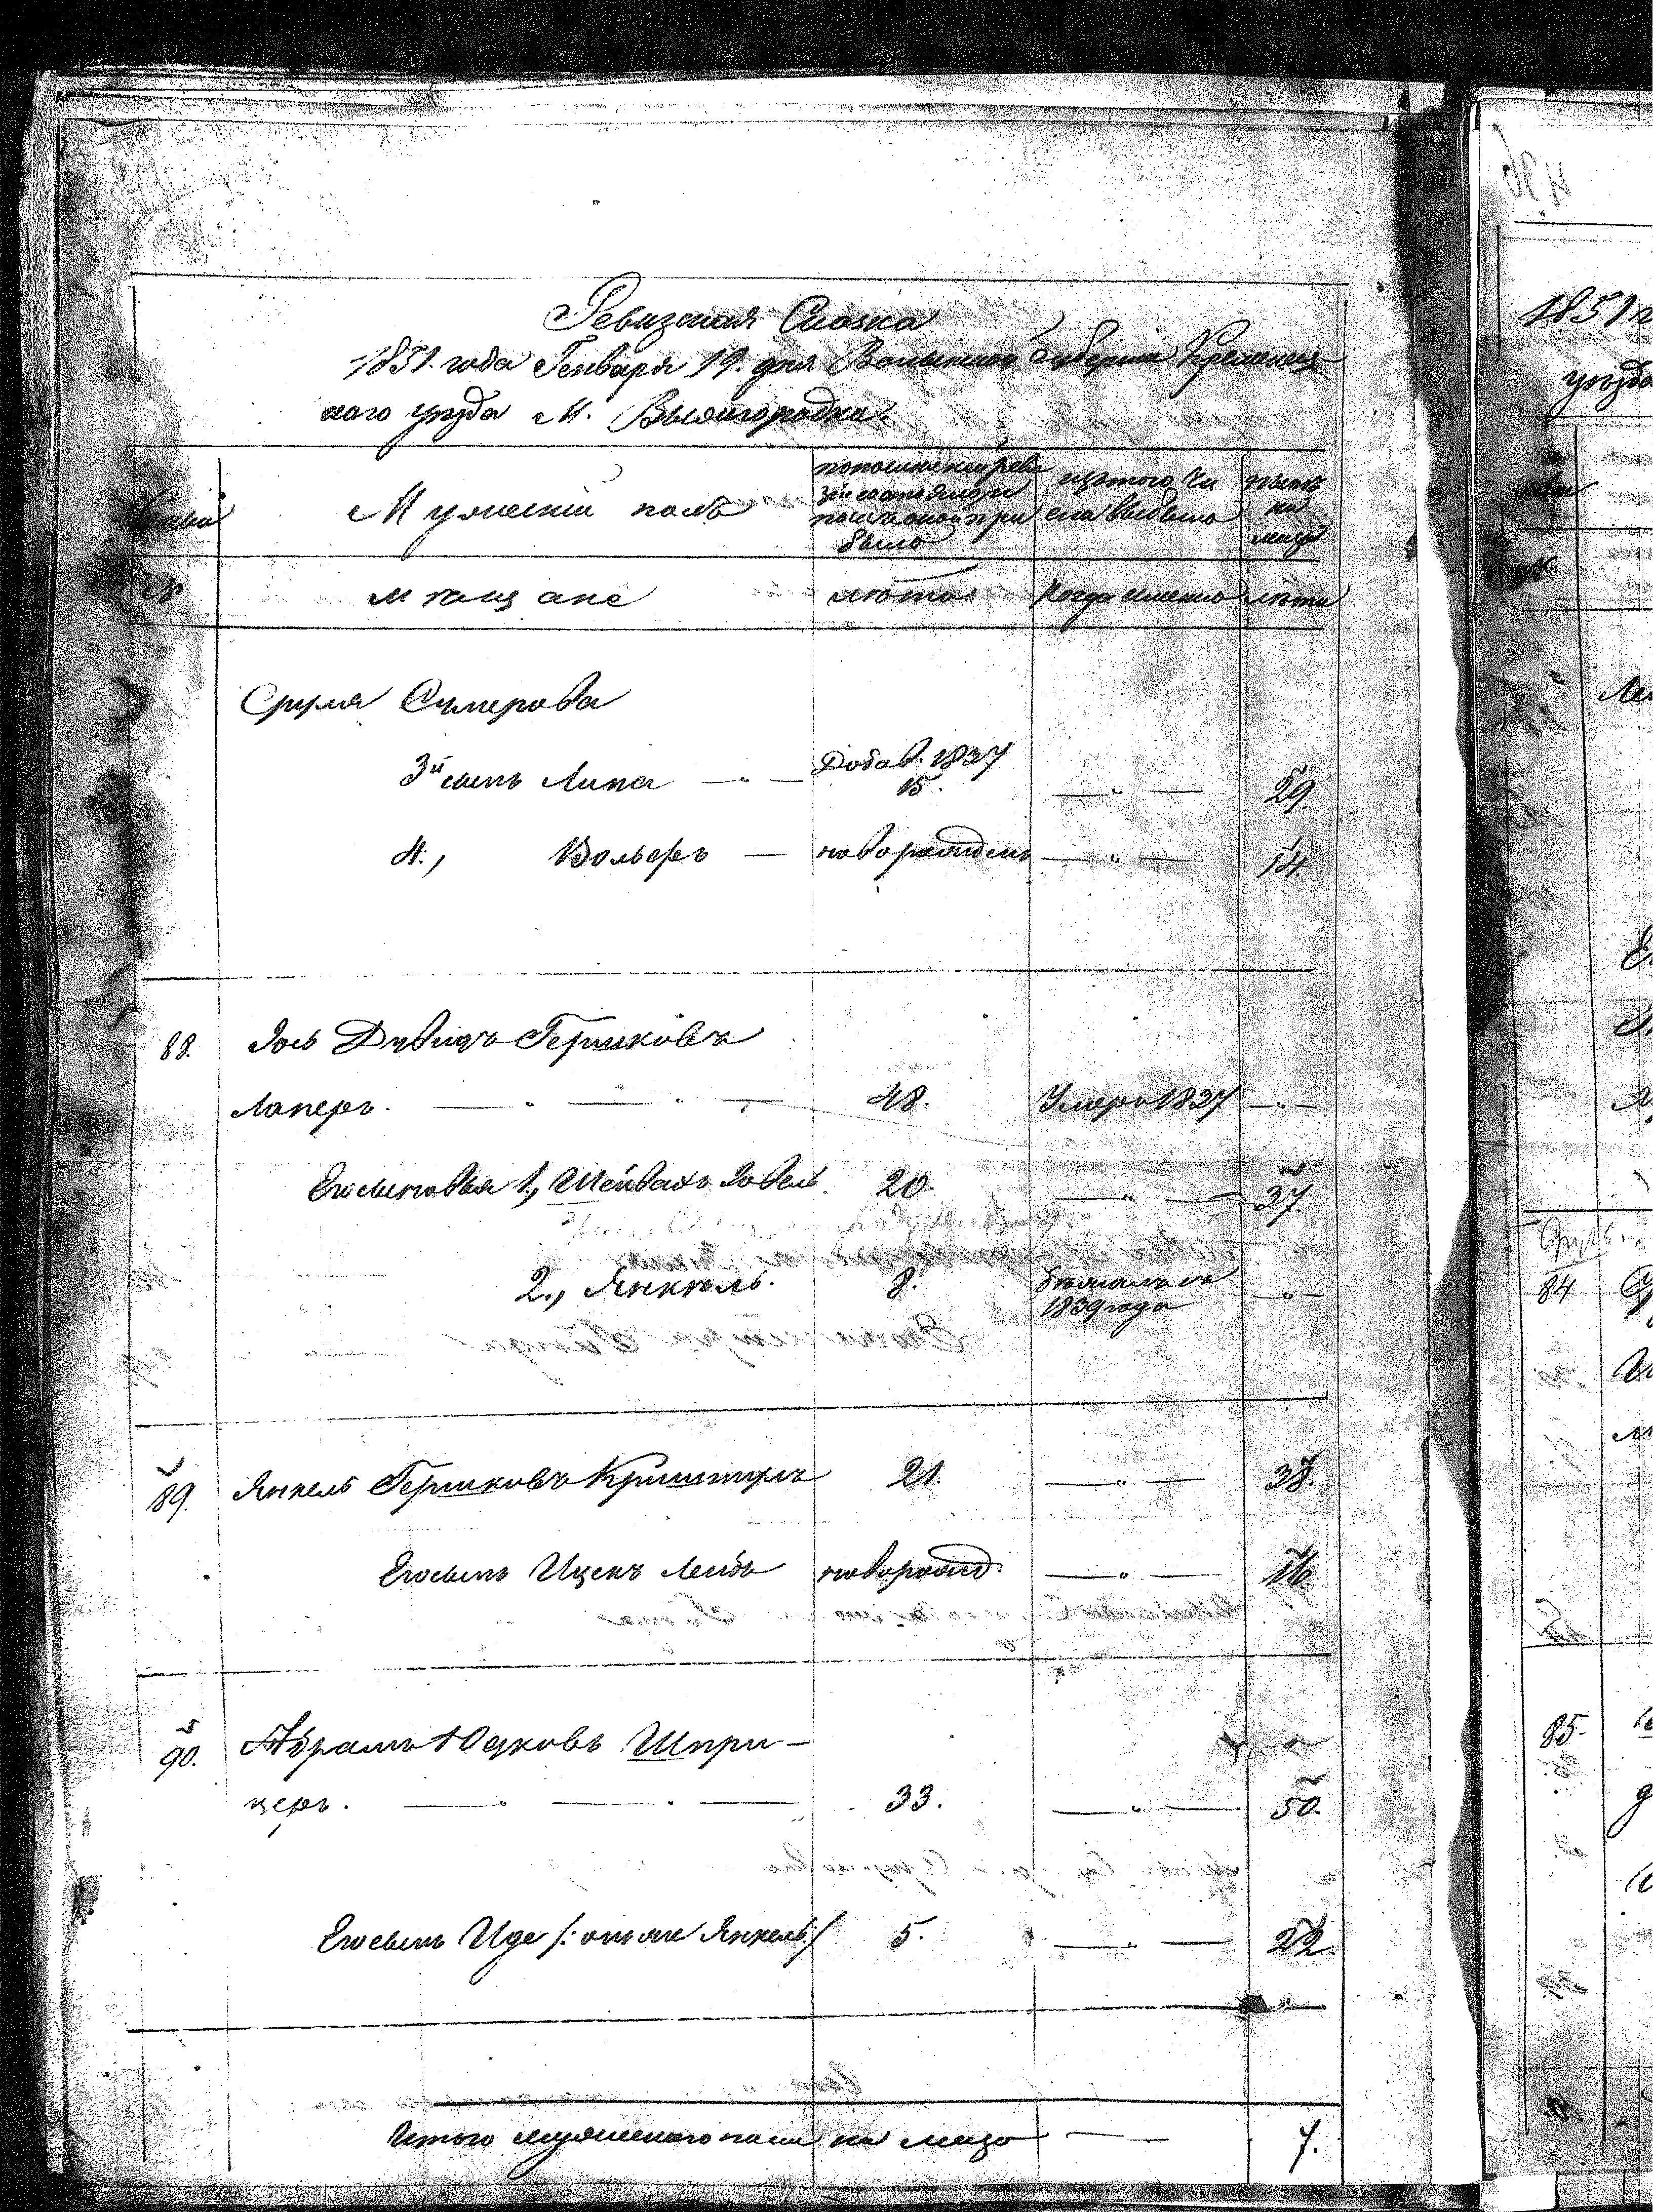 Ревизская Сказка
1851. года Генваря 19. дня Волынской Губернии Кременец-
кого уезда М. Вышгородка.
Семьи
Мужеский полъ
по последней реви
зіи состояло и
после оной при
было
изъ того чи
сла выбыло
ныне
на
лицо
№
мещане
лета
когда именно
лета
Сруля Сумерова
3й сынъ Липа — " — Добав. 1837
15. — " — 29.
4., Вольфъ — новорожденъ — " — 14.
88. Іось Дувидъ Гершковъ
Лаперъ. — " — " — 48. Умеръ 1837 — " —
Его сыновья 1., Шейвахъ Зовель. 20. — " — 37.
2., Янкель. 8. бежалъ въ
1839 года — " —
89. Янкель Гершковъ Криштулъ 21. — " — 38.
Его сынъ Ицекъ Лейбъ новорожд. — " — 16.
90. Абрамъ Юдковъ Шпри-
церъ. — " — " — 33. — " — 50.
Его сынъ Иде /: онъ же Янкель :/ 5. — " — 22.
Итого мужескаго пола на лицо — 7.
436
1851 г
уезда
84
85.